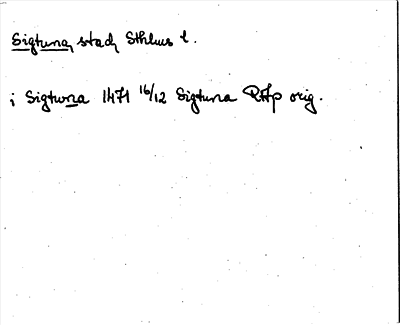 Sigtuna, stad, Sthlms l.
i Sigtuna 1471 16/12 Sigtuna RAp orig.